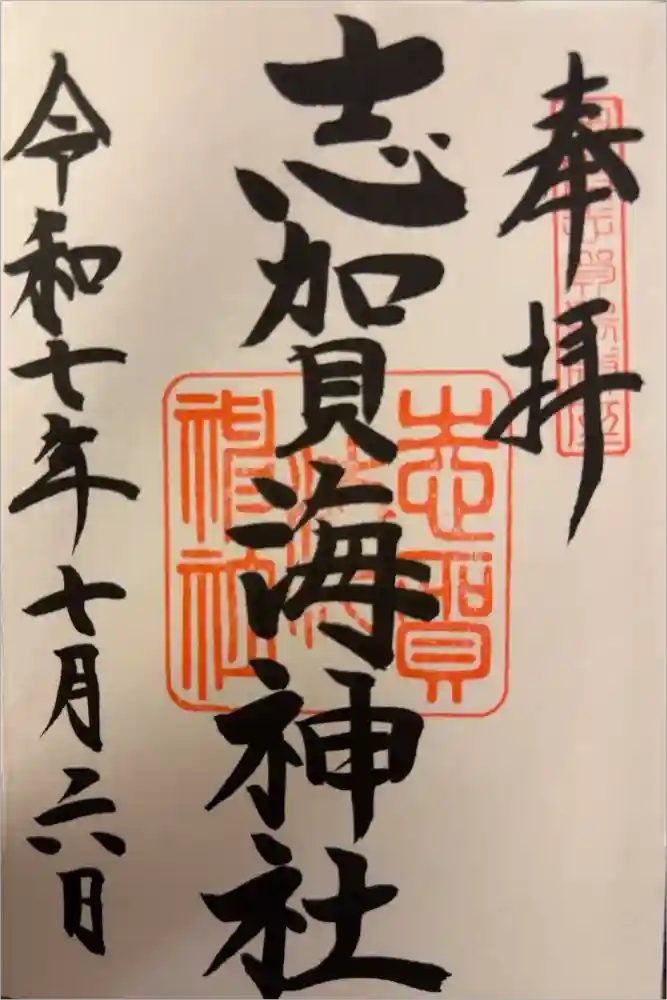 奉拝
志賀海神社
令和七年七月二六日
志賀海神社